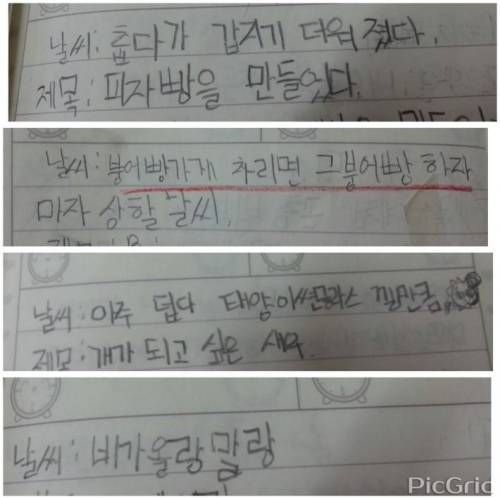 날씨: 흡다가 갑자기 더워 졌다.
제목: 피자빵을 만들었다.
날씨: 붕어빵가게 차리면 그붕어빵 하자
마자 상할 날씨.
날씨: 아주 덥다 태양이썬글라스 낄만큼.
제모: 개가 되고 싶은 새우.
날씨: 비가올랑말랑
PicGrid